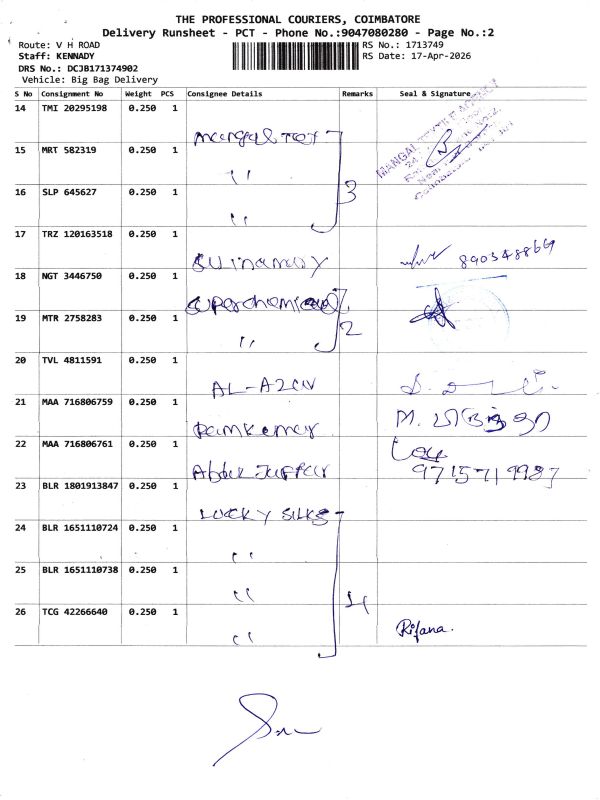 THE PROFESSIONAL COURIERS, COIMBATORE
Delivery Runsheet - PCT - Phone No.:9047080280 - Page No.:2
Route: V H ROAD
RS No.: 1713749
Staff: KENNADY
RS Date: 17-Apr-2026
DRS No.: DCJB171374902
Vehicle: Big Bag Delivery
S No Consignment No Weight PCS Consignee Details Remarks Seal & Signature
14 TMI 20295198 0.250 1
15 MRT 582319 0.250 1 "
MANGAL TEXTILE AGENCY
16 SLP 645627 0.250 1 " 3
17 TRZ 120163518 0.250 1 8903488669
18 NGT 3446750 0.250 1
19 MTR 2758283 0.250 1 " 2
20 TVL 4811591 0.250 1
21 MAA 716806759 0.250 1 Ramkumar
22 MAA 716806761 0.250 1 Abdul
23 BLR 1801913847 0.250 1 LUCKY SILKS
24 BLR 1651110724 0.250 1 "
25 BLR 1651110738 0.250 1 " 4
26 TCG 42266640 0.250 1 " Rifana.